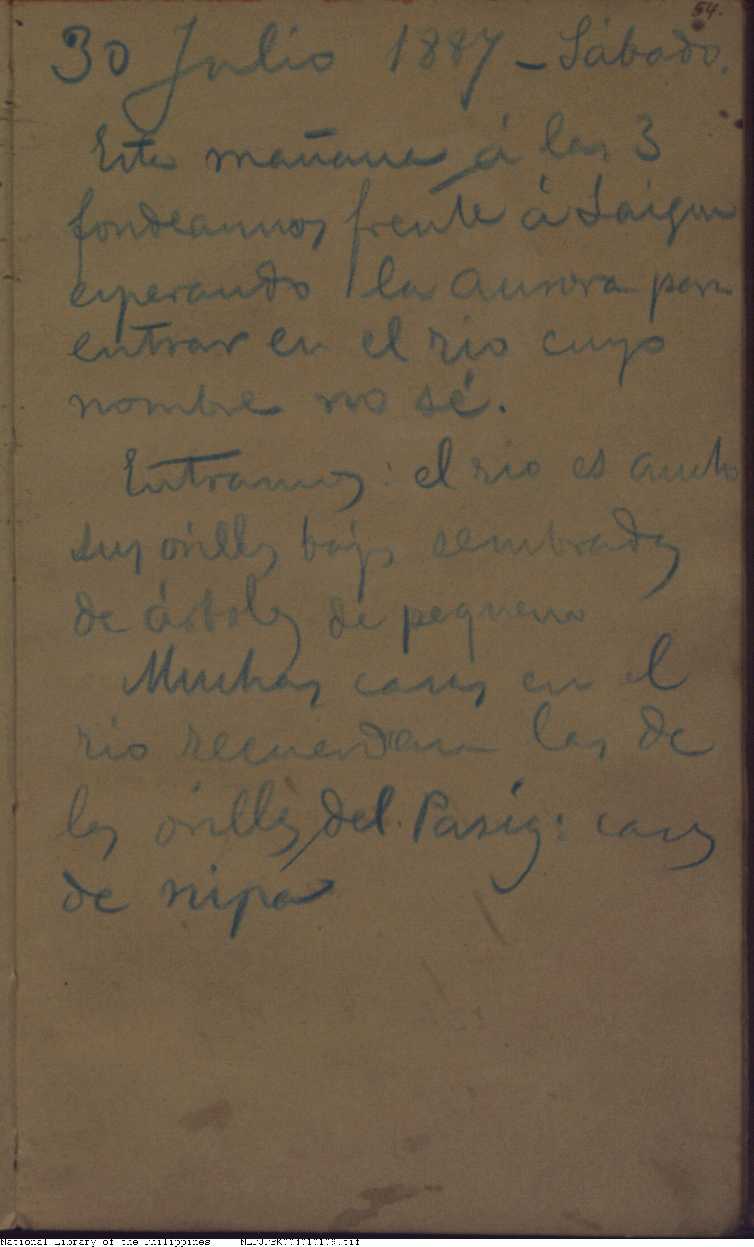 54.
30 Julio 1887 – Sábado.
Esta mañana á las 3
fondeamos frente á Saigon
esperando la aurora para
entrar en el rio cuyo
nombre no sé.
Entramos: el rio es ancho
sus orillas bajas sembradas
de árboles de pequeno
Muchas casas en el
rio recuerdan las de
las orillas del Pasig: casas
de nipa
National Library of the Philippines